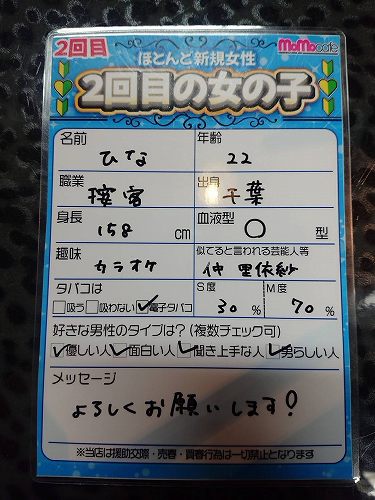 2回目
ほとんど新規女性
MoMocafe
2回目の女の子
名前 ひな
年齢 22
職業 接客
出身 千葉
身長 158 cm
血液型 O 型
趣味 カラオケ
似てると言われる芸能人等 仲 里依紗
タバコは
□吸う □吸わない ☑電子タバコ
S度 30 %
M度 70 %
好きな男性のタイプは?(複数チェック可)
☑優しい人 ☑面白い人 ☑聞き上手な人 ☑男らしい人
メッセージ
よろしくお願いします!
※当店は援助交際・売春・買春行為は一切禁止となります